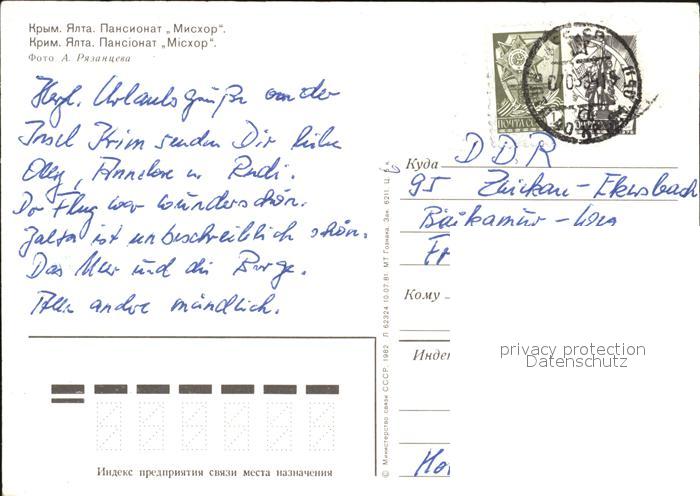 Крым. Ялта. Пансионат „Мисхор“.
Крим. Ялта. Пансіонат „Місхор“.
Фото А. Рязанцева
Herzl. Urlaubsgrüße von der
Insel Krim senden Dir liebe
Annelore u. Rudi.
Der Flug war wunderschön.
Jalta ist unbeschreiblich schön.
Das Meer und die Berge.
Alles andre mündlich.
ПОЧТА СССР
Куда DDR
95 Zwickau-Eckersbach
Fr
Кому
Индек
privacy protection
Datenschutz
Индекс предприятия связи места назначения
© Министерство связи СССР. 1982 Л 62324 10.07.81. МТ Гознака. Зак. 6211. Ц. 6 к.